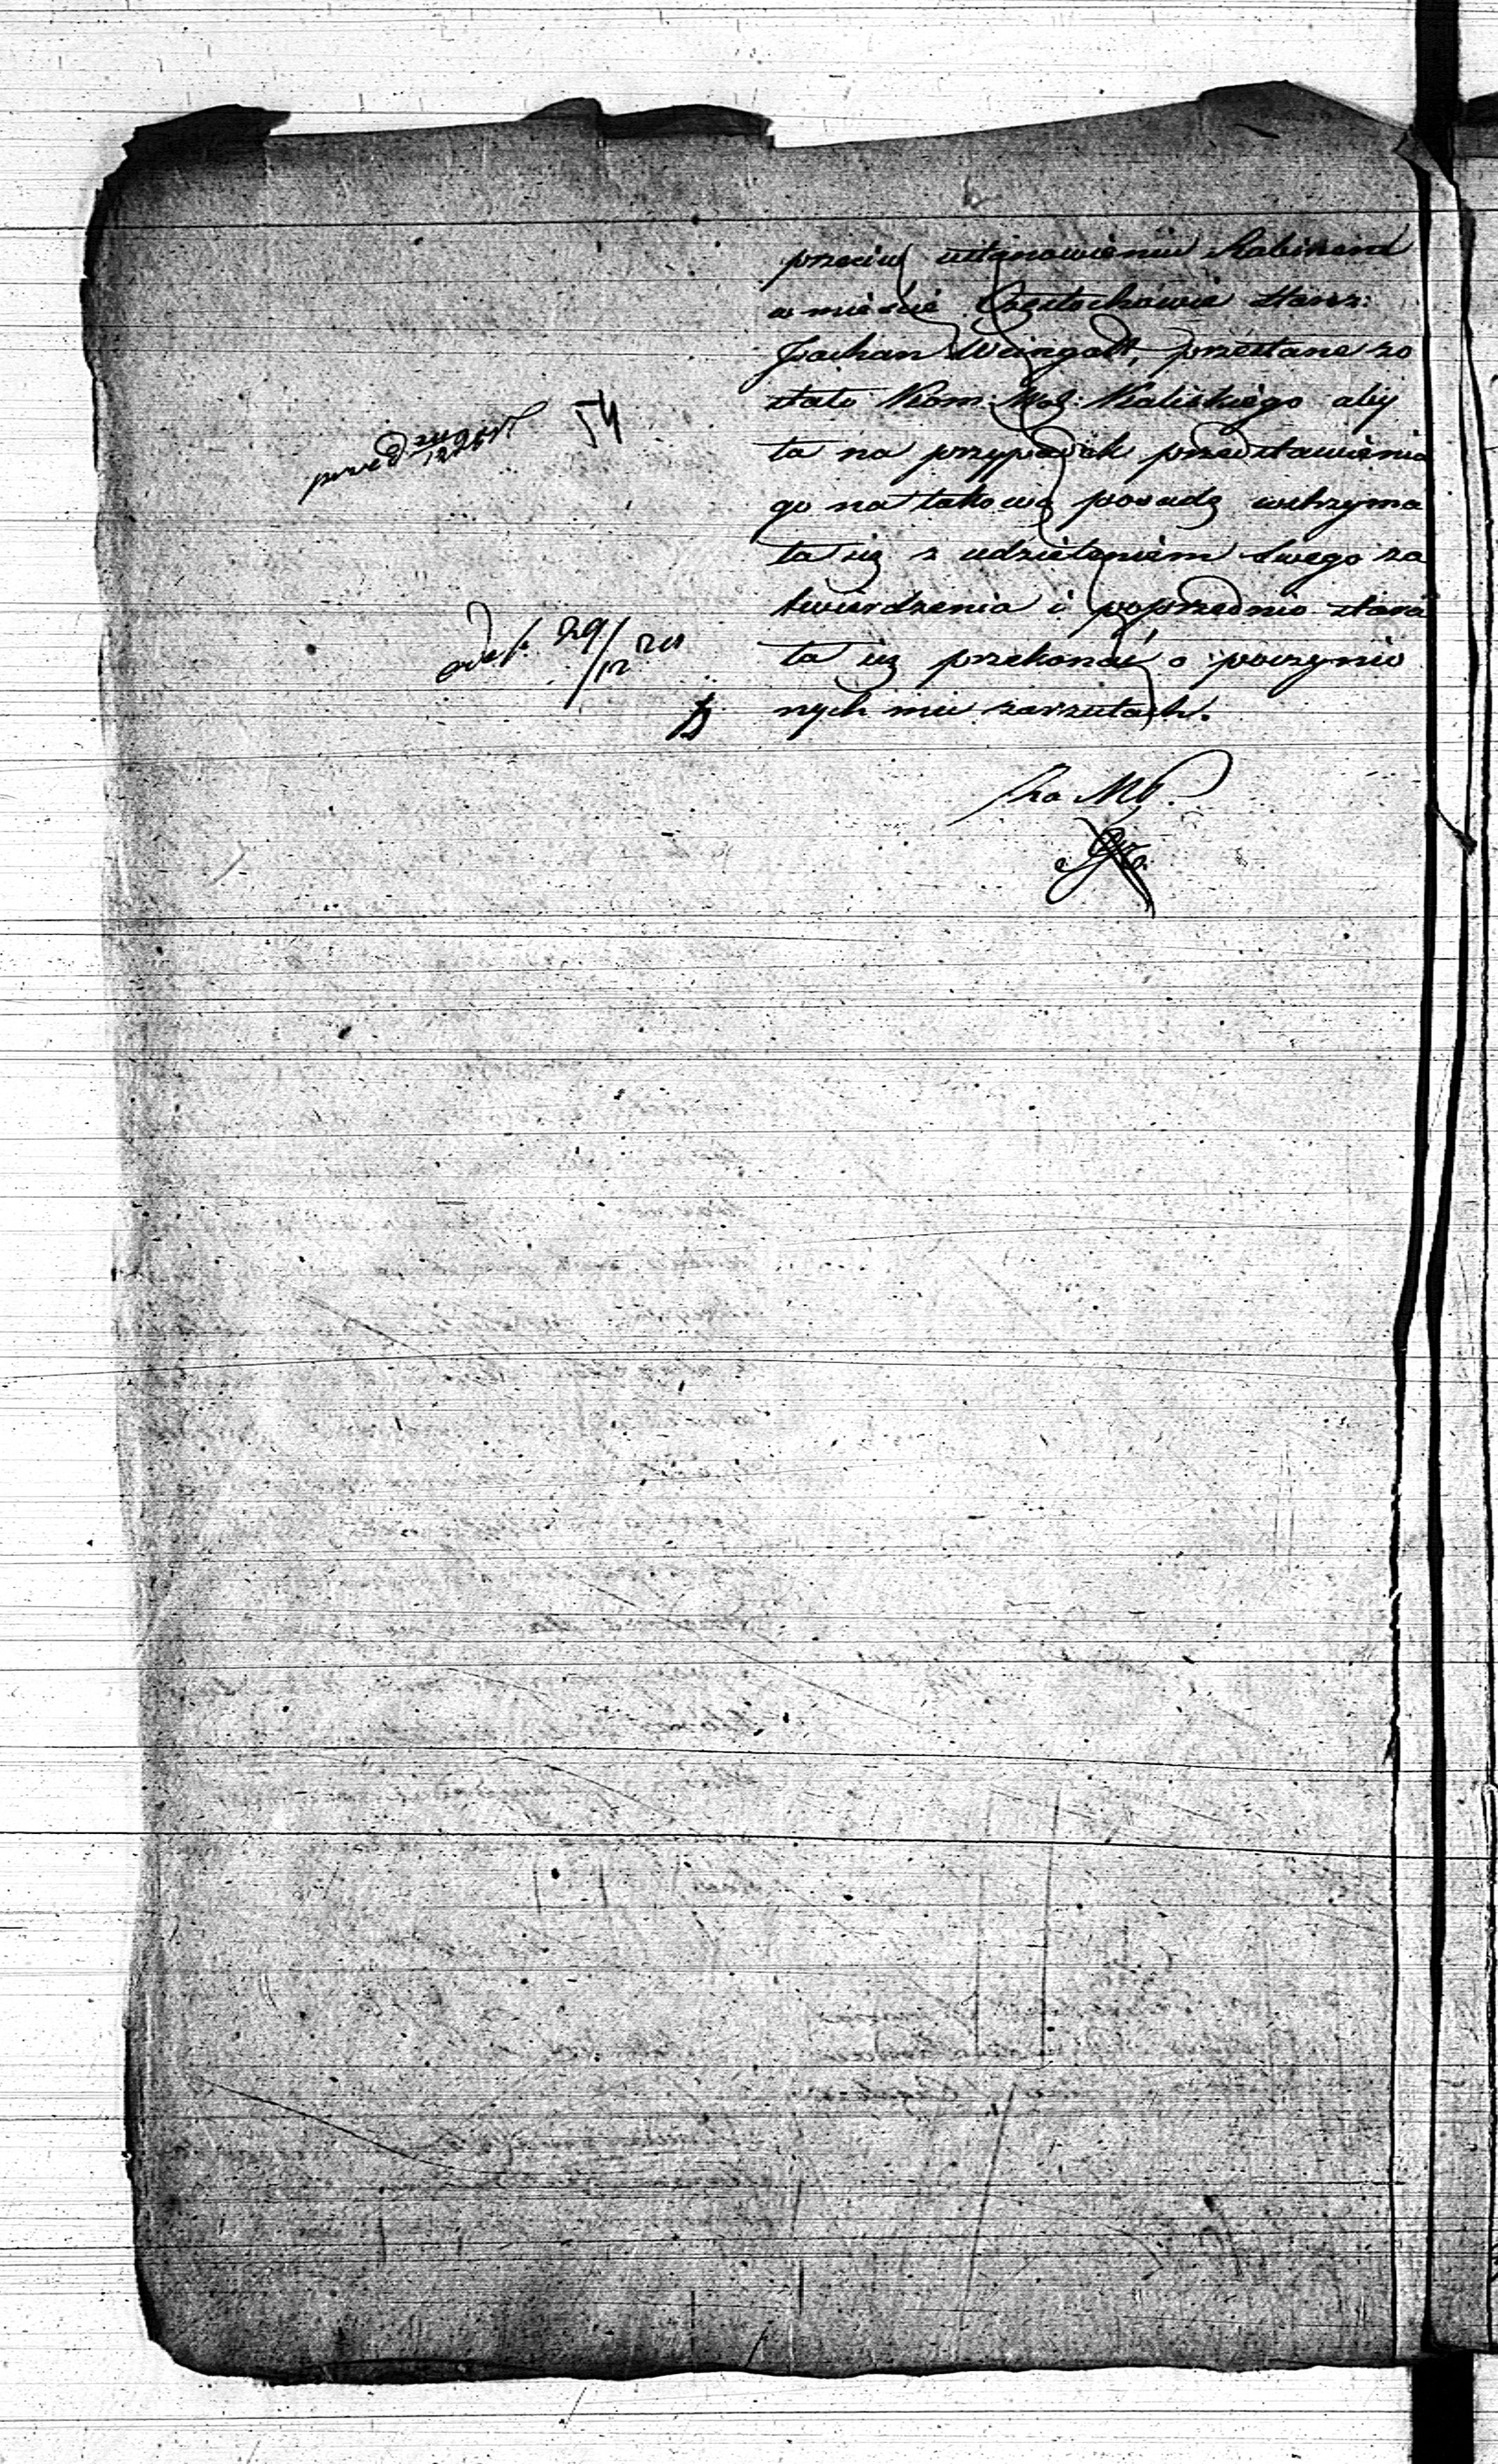 przeciw ustanowieniu Rabinem
w mieście Częstochowie Starz:
Jochan Weingott, przesłane zo
stało Kom: Woj: Kaliskiego aby
ta na przypadek przedstawienia
go na takową posadę wstrzyma
ła się z udzieleniem swego za
twierdzenia i poprzednio stara
ła się przekonać o poczynio
nych mu zarzutach.
54
29/12